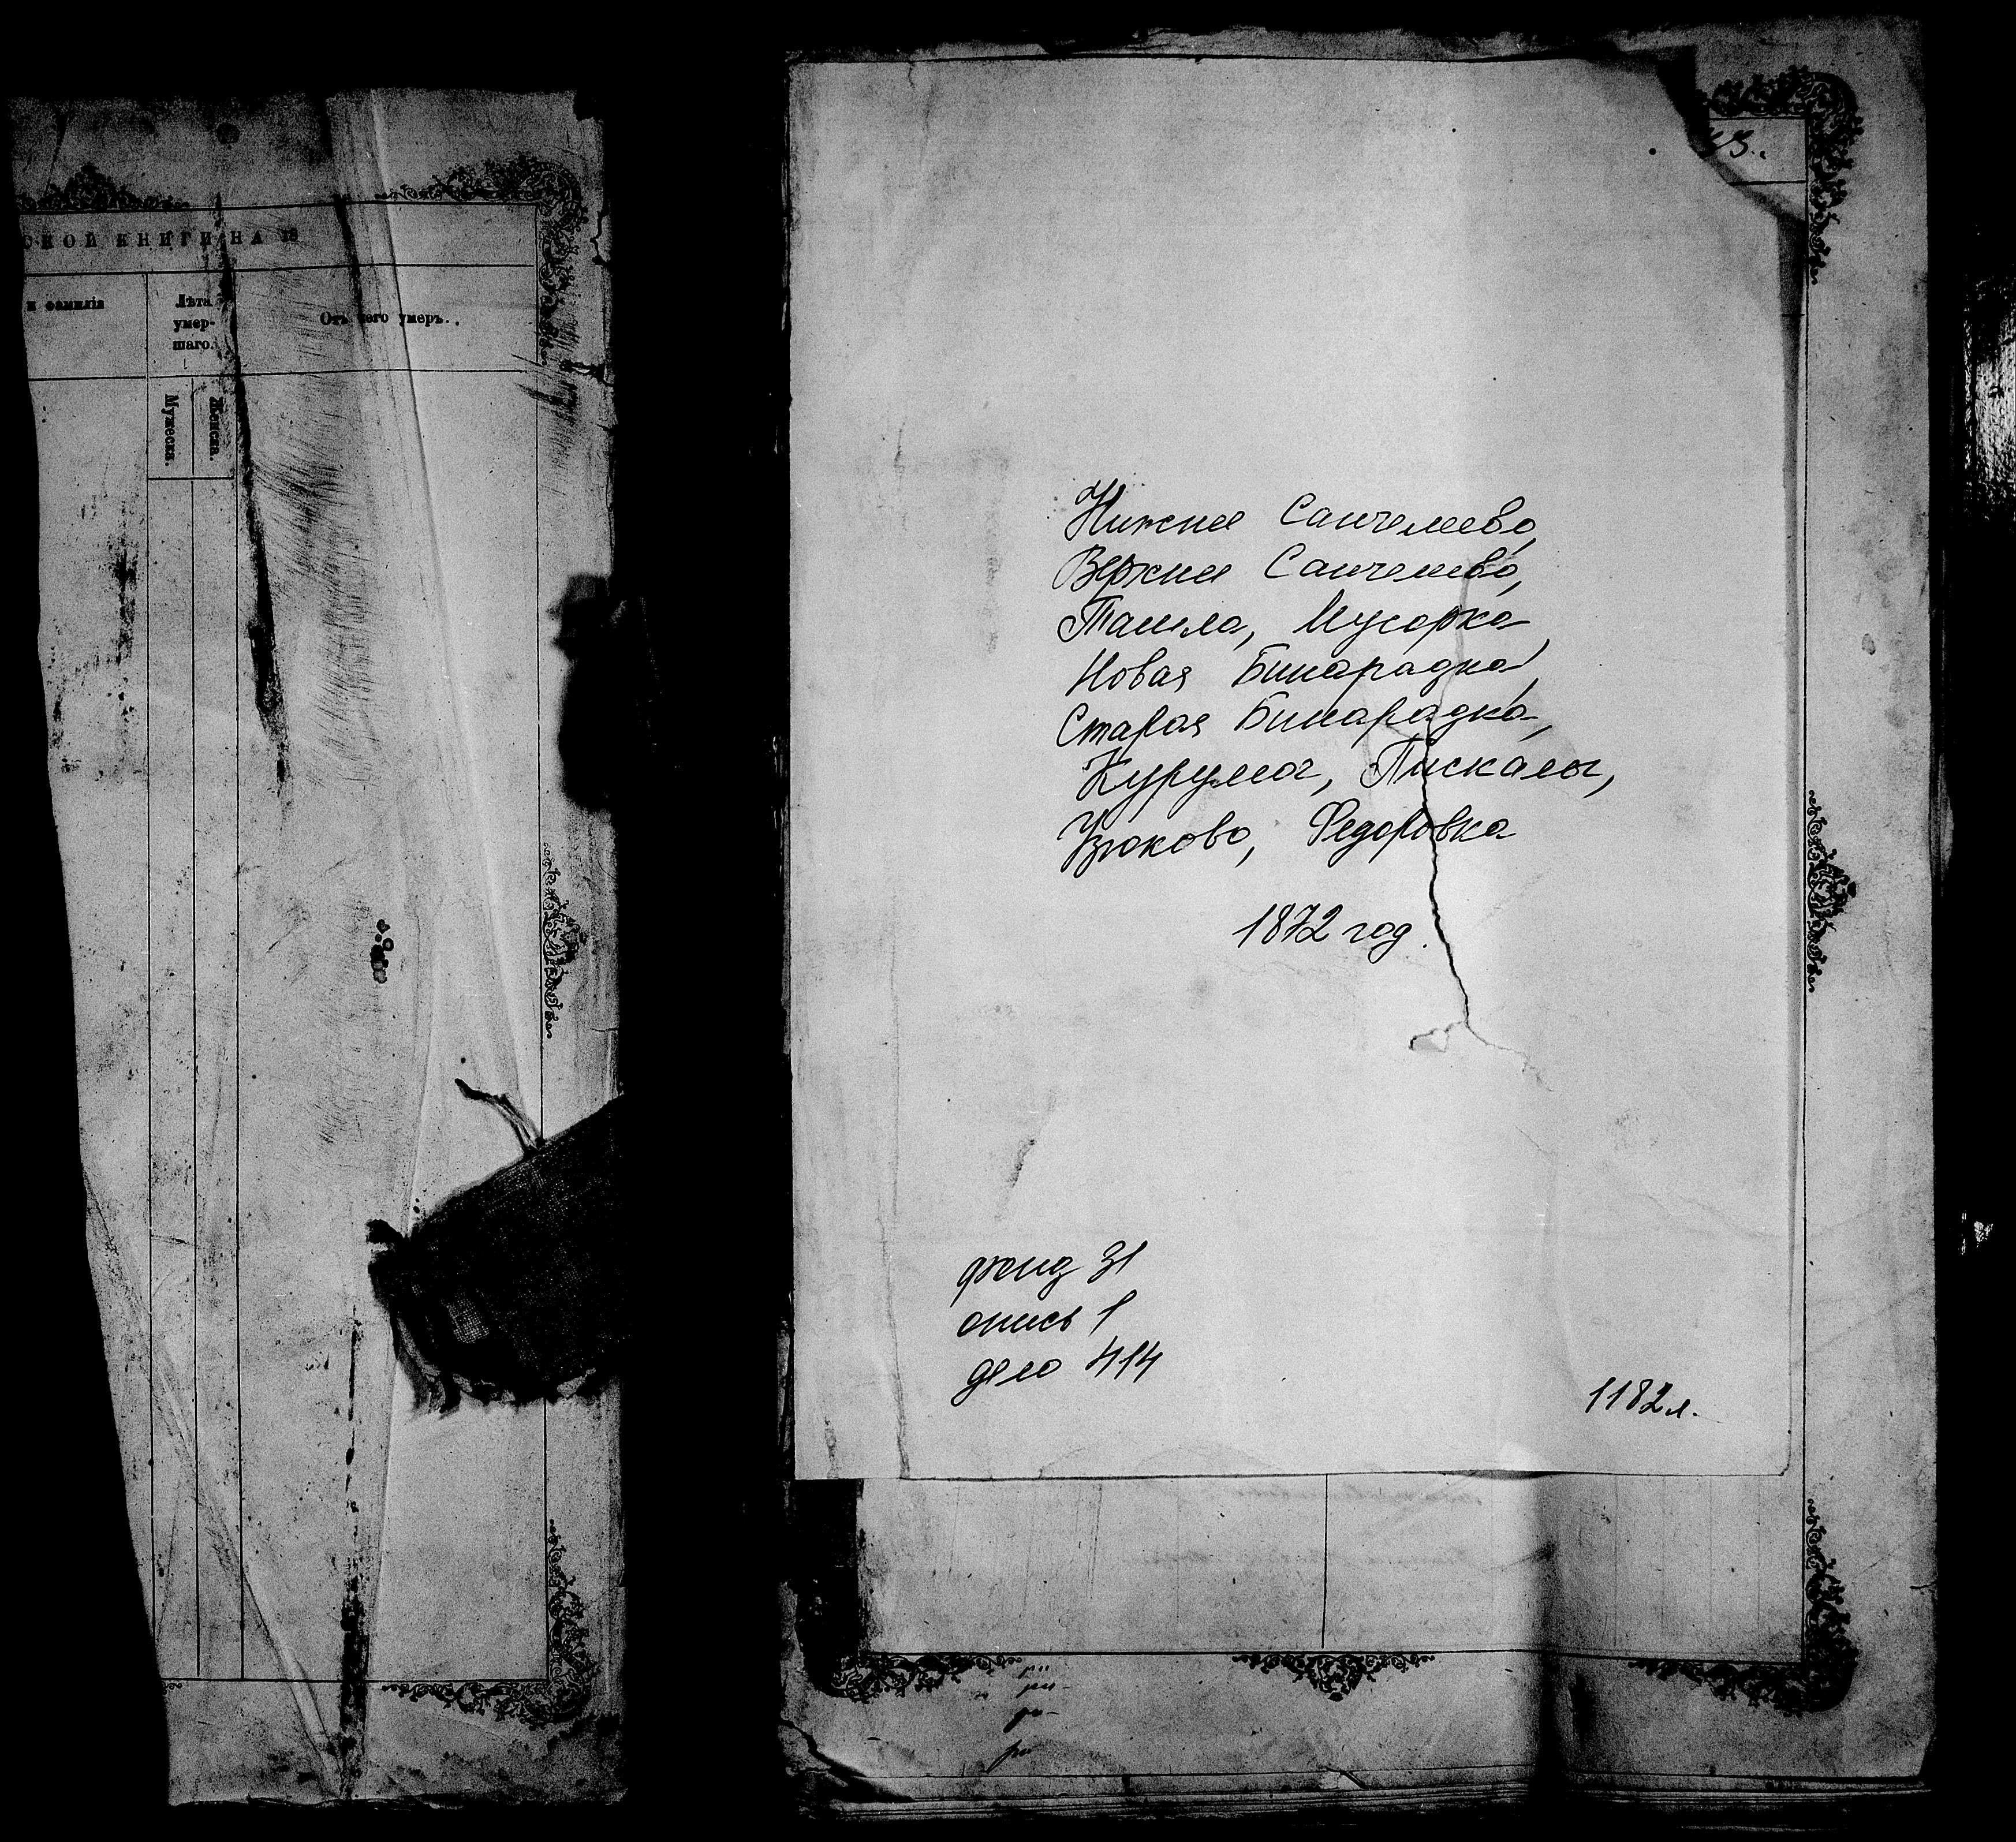 СКОЙ КНИГИ НА 18
и фамилія
Лѣта
умер-
шаго.
Отъ чего умеръ.
Мужеска.
Женска.
Нижнее Санчелеево,
Верхнее Санчелеево,
Ташла, Мусорка,
Новая Бинарадка,
Старая Бинарадка,
Курумоч, Пискалы,
Узюково, Федоровка
1872 год.
фонд 31
опись 1
дело 414
1182 л.